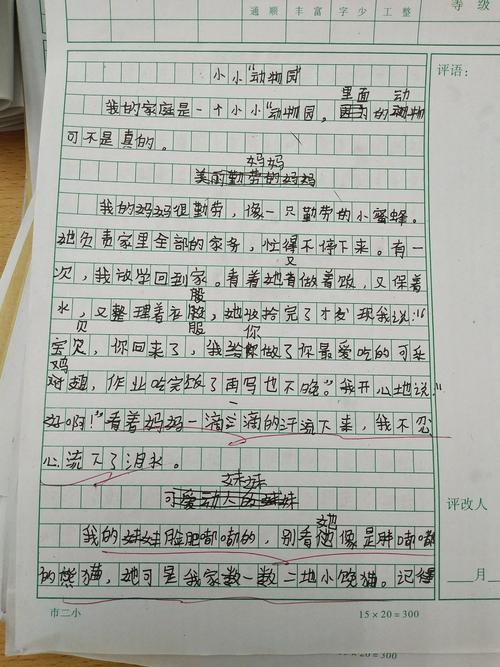 等级
通顺 丰富 字少 工整
评语:
小小“动物园”
里面 动
我的家庭是一个小小“动物园”。的物
可不是真的。
妈妈
美丽勤劳的妈妈
我的妈妈很勤劳，像一只勤劳的小蜜蜂。
她负责家里全部的家务，忙得不停下来。有一
又
次，我放学回到家。看着她有做着饭，又保着
水，又整理着衣服，她收拾完了才发现我说：“
贝 服 你
宝贝，你回来了，我给你做了你最爱吃的可乐
鸡
对翅，作业吃完饭了再写也不晚。”我开心地说“
一
好啊！”看着妈妈一滴滴的汗流下来，我不忍
心流下了泪水。
妹妹
可爱动人的妹妹
她
我的妹妹脸肥嘟嘟的，别看她像是胖嘟嘟
的熊猫，她可是我家数一数二地小馋猫。记得
评改人
月
市二小
15×20=300
15×20=300